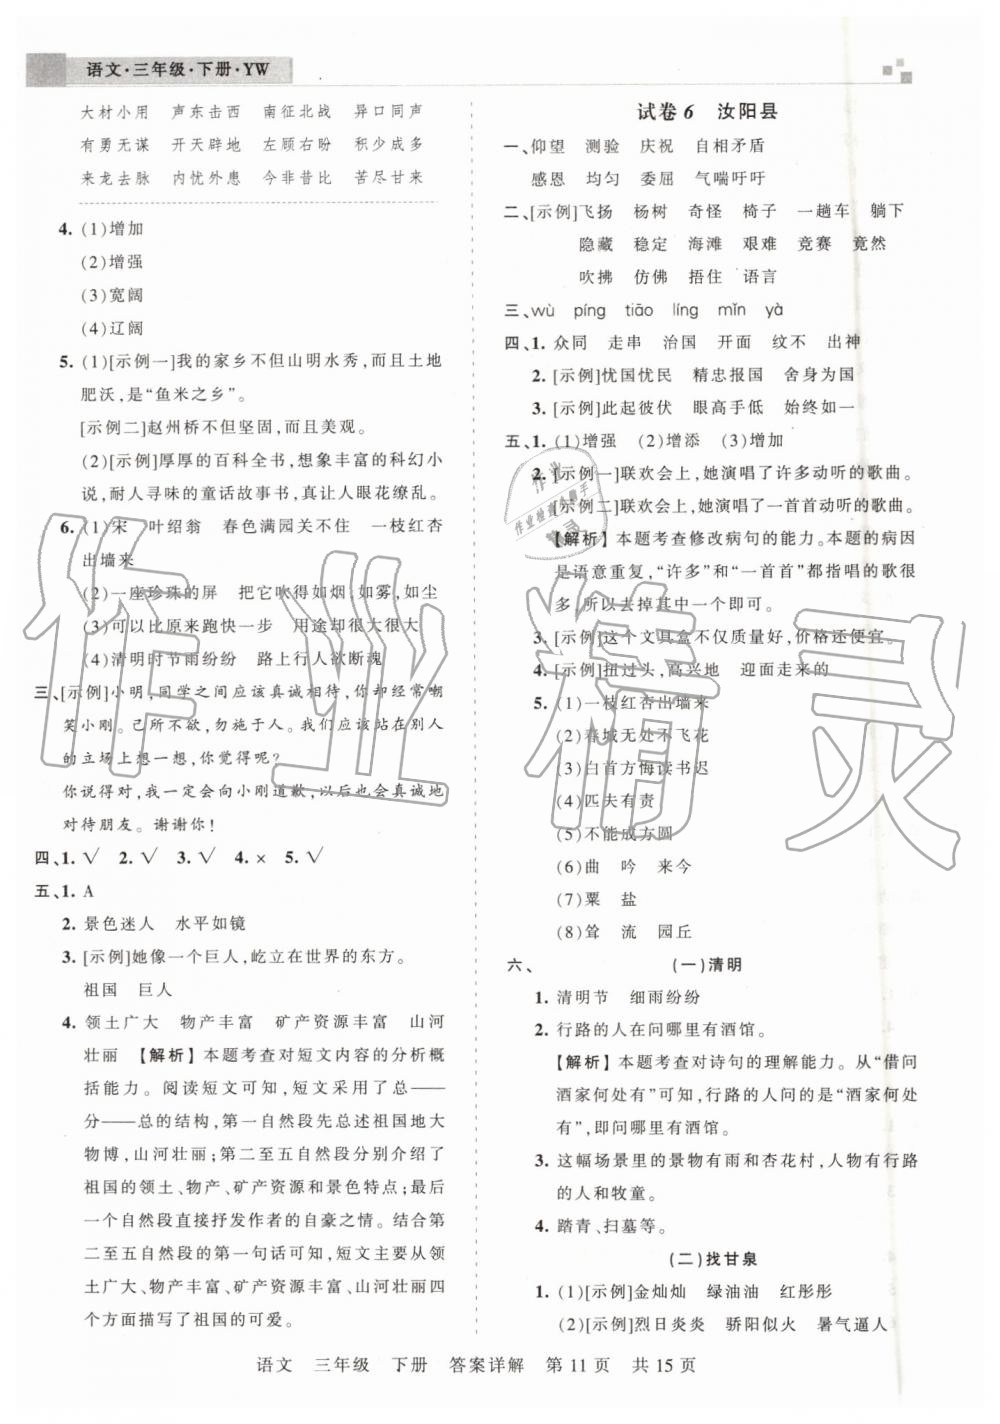 语文·三年级·下册·YW
大材小用 声东击西 南征北战 异口同声
有勇无谋 开天辟地 左顾右盼 积少成多
来龙去脉 内忧外患 今非昔比 苦尽甘来
4. (1)增加
(2)增强
(3)宽阔
(4)辽阔
5. (1)[示例一]我的家乡不但山明水秀,而且土地
肥沃,是“鱼米之乡”。
[示例二]赵州桥不但坚固,而且美观。
(2)[示例]厚厚的百科全书,想象丰富的科幻小
说,耐人寻味的童话故事书,真让人眼花缭乱。
6. (1)宋 叶绍翁 春色满园关不住 一枝红杏
出墙来
(2)一座珍珠的屏 把它吹得如烟,如雾,如尘
(3)可以比原来跑快一步 用途却很大很大
(4)清明时节雨纷纷 路上行人欲断魂
三、[示例]小明,同学之间应该真诚相待,你却经常嘲
笑小刚。己所不欲,勿施于人。我们应该站在别人
的立场上想一想,你觉得呢?
你说得对,我一定会向小刚道歉,以后也会真诚地
对待朋友。谢谢你!
四、1. √ 2. √ 3. √ 4. × 5. √
五、1. A
2. 景色迷人 水平如镜
3. [示例]她像一个巨人,屹立在世界的东方。
祖国 巨人
4. 领土广大 物产丰富 矿产资源丰富 山河
壮丽 【解析】本题考查对短文内容的分析概
括能力。阅读短文可知,短文采用了总——
分——总的结构,第一自然段先总述祖国地大
物博,山河壮丽。第二至五自然段分别介绍了
祖国的领土、物产、矿产资源和景色特点;最后
一个自然段直接抒发作者的自豪之情。结合第
二至五自然段的第一句话可知,短文主要从领
土广大、物产丰富、矿产资源丰富、山河壮丽四
个方面描写了祖国的可爱。
试卷6 汝阳县
一、仰望 测验 庆祝 自相矛盾
感恩 均匀 委屈 气喘吁吁
二、[示例]飞扬 杨树 奇怪 椅子 一趟车 躺下
隐藏 稳定 海滩 艰难 竞赛 竟然
吹拂 仿佛 捂住 语言
三、wù píng tiāo líng mǐn yà
四、1. 众同 走串 治国 开面 纹不 出神
2. [示例]忧国忧民 精忠报国 舍身为国
3. [示例]此起彼伏 眼高手低 始终如一
五、1. (1)增强 (2)增添 (3)增加
2. [示例一]联欢会上,她演唱了许多动听的歌曲。
[示例二]联欢会上,她演唱了一首首动听的歌曲。
【解析】本题考查修改病句的能力。本题的病因
是语意重复,“许多”和“一首首”都指唱的歌很
多,所以去掉其中一个即可。
3. [示例]这个文具盒不仅质量好,价格还便宜。
4. [示例]扭过头,高兴地 迎面走来的
5. (1)一枝红杏出墙来
(2)春城无处不飞花
(3)白首方悔读书迟
(4)匹夫有责
(5)不能成方圆
(6)曲 吟 来今
(7)粟 盐
(8)耸 流 园丘
六、 (一)清明
1. 清明节 细雨纷纷
2. 行路的人在问哪里有酒馆。
【解析】本题考查对诗句的理解能力。从“借问
酒家何处有”可知,行路的人问的是“酒家何处
有”,即问哪里有酒馆。
3. 这幅场景里的景物有雨和杏花村,人物有行路
的人和牧童。
4. 踏青、扫墓等。
(二)找甘泉
1. (1)[示例]金灿灿 绿油油 红彤彤
(2)[示例]烈日炎炎 骄阳似火 暑气逼人
语文 三年级 下册 答案详解 第11页 共15页
作业精灵